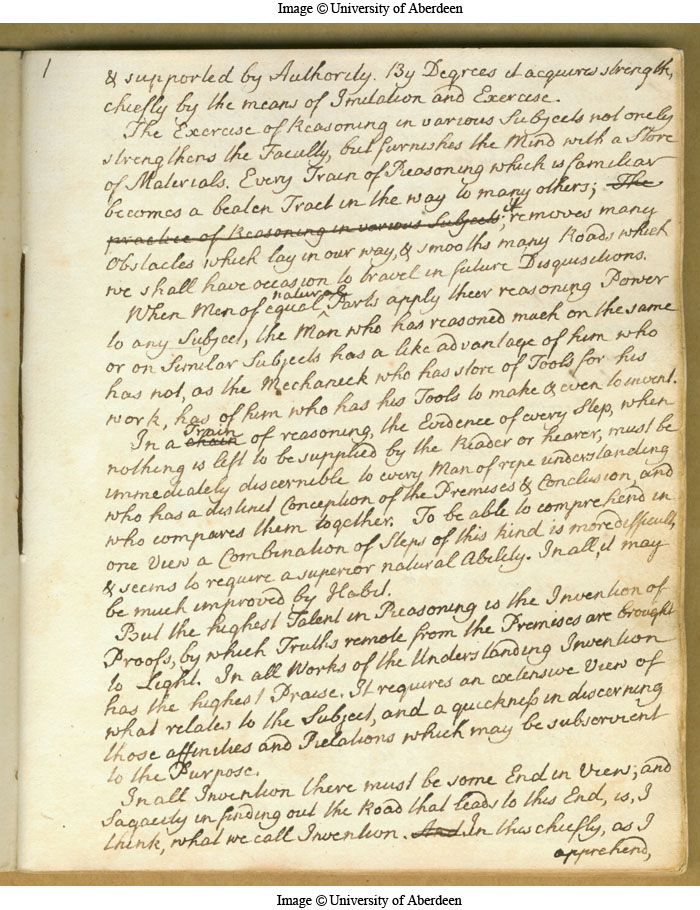 Image © University of Aberdeen
1
& supported by Authority. By Degrees it acquires strength,
chiefly by the means of Imitation and Exercise.
The Exercise of Reasoning in various Subjects not onely
strengthens the Faculty, but furnishes the Mind with a Store
of Materials. Every Train of Reasoning which is familiar
becomes a beaten Tract in the way to many others; The
practice of Reasoning in various Subjects, it removes many
Obstacles which lay in our way, & smooths many Roads which
we shall have occasion to travel in future Disquisitions.
When Men of equal natural Parts apply their reasoning Power
to any Subject, the Man who has reasoned much on the same
or on Similar Subjects has a like advantage of him who
has not, as the Mechanick who has store of Tools for his
work, has of him who has his Tools to make & even to invent.
In a chain Train of reasoning, the Evidence of every Step, when
nothing is left to be supplied by the Reader or hearer, must be
immediately discernible to every Man of ripe understanding
who has a distinct Conception of the Premises & Conclusion, and
who compares them together. To be able to comprehend in
one View a Combination of Steps of this kind is more difficult,
& seems to require a superior natural Ability. In all, it may
be much improved by Habit.
But the highest Talent in Reasoning is the Invention of
Proofs, by which Truths remote from the Premises are brought
to Light. In all Works of the Understanding Invention
has the highest Praise. It requires an extensive View of
what relates to the Subject, and a quickness in discerning
those affinities and Relations which may be subservient
to the Purpose.
In all Invention there must be some End in View; and
Sagacity in finding out the Road that leads to this End, is, I
think, what we call Invention. And In this chiefly, as I
apprehend,
Image © University of Aberdeen